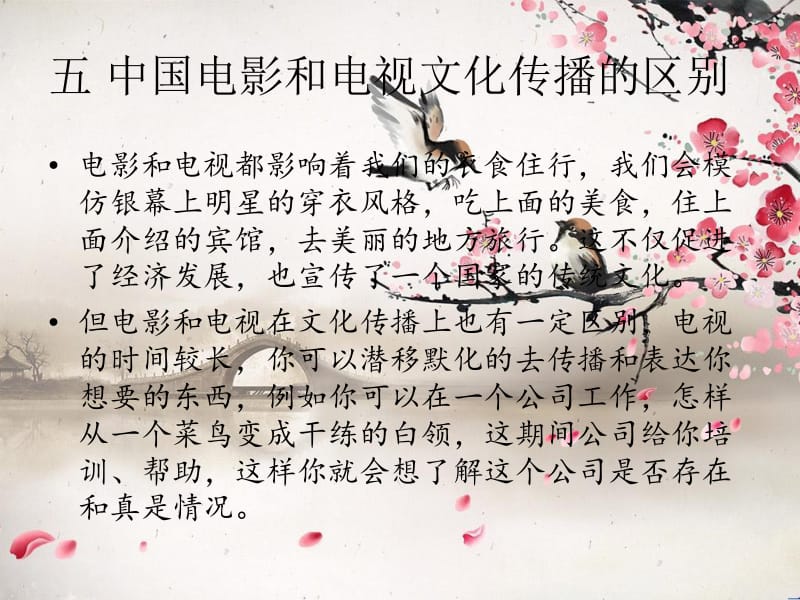 五 中国电影和电视文化传播的区别
• 电影和电视都影响着我们的衣食住行，我们会模
仿银幕上明星的穿衣风格，吃上面的美食，住上
面介绍的宾馆，去美丽的地方旅行。这不仅促进
了经济发展，也宣传了一个国家的传统文化。
• 但电影和电视在文化传播上也有一定区别，电视
的时间较长，你可以潜移默化的去传播和表达你
想要的东西，例如你可以在一个公司工作，怎样
从一个菜鸟变成干练的白领，这期间公司给你培
训、帮助，这样你就会想了解这个公司是否存在
和真是情况。